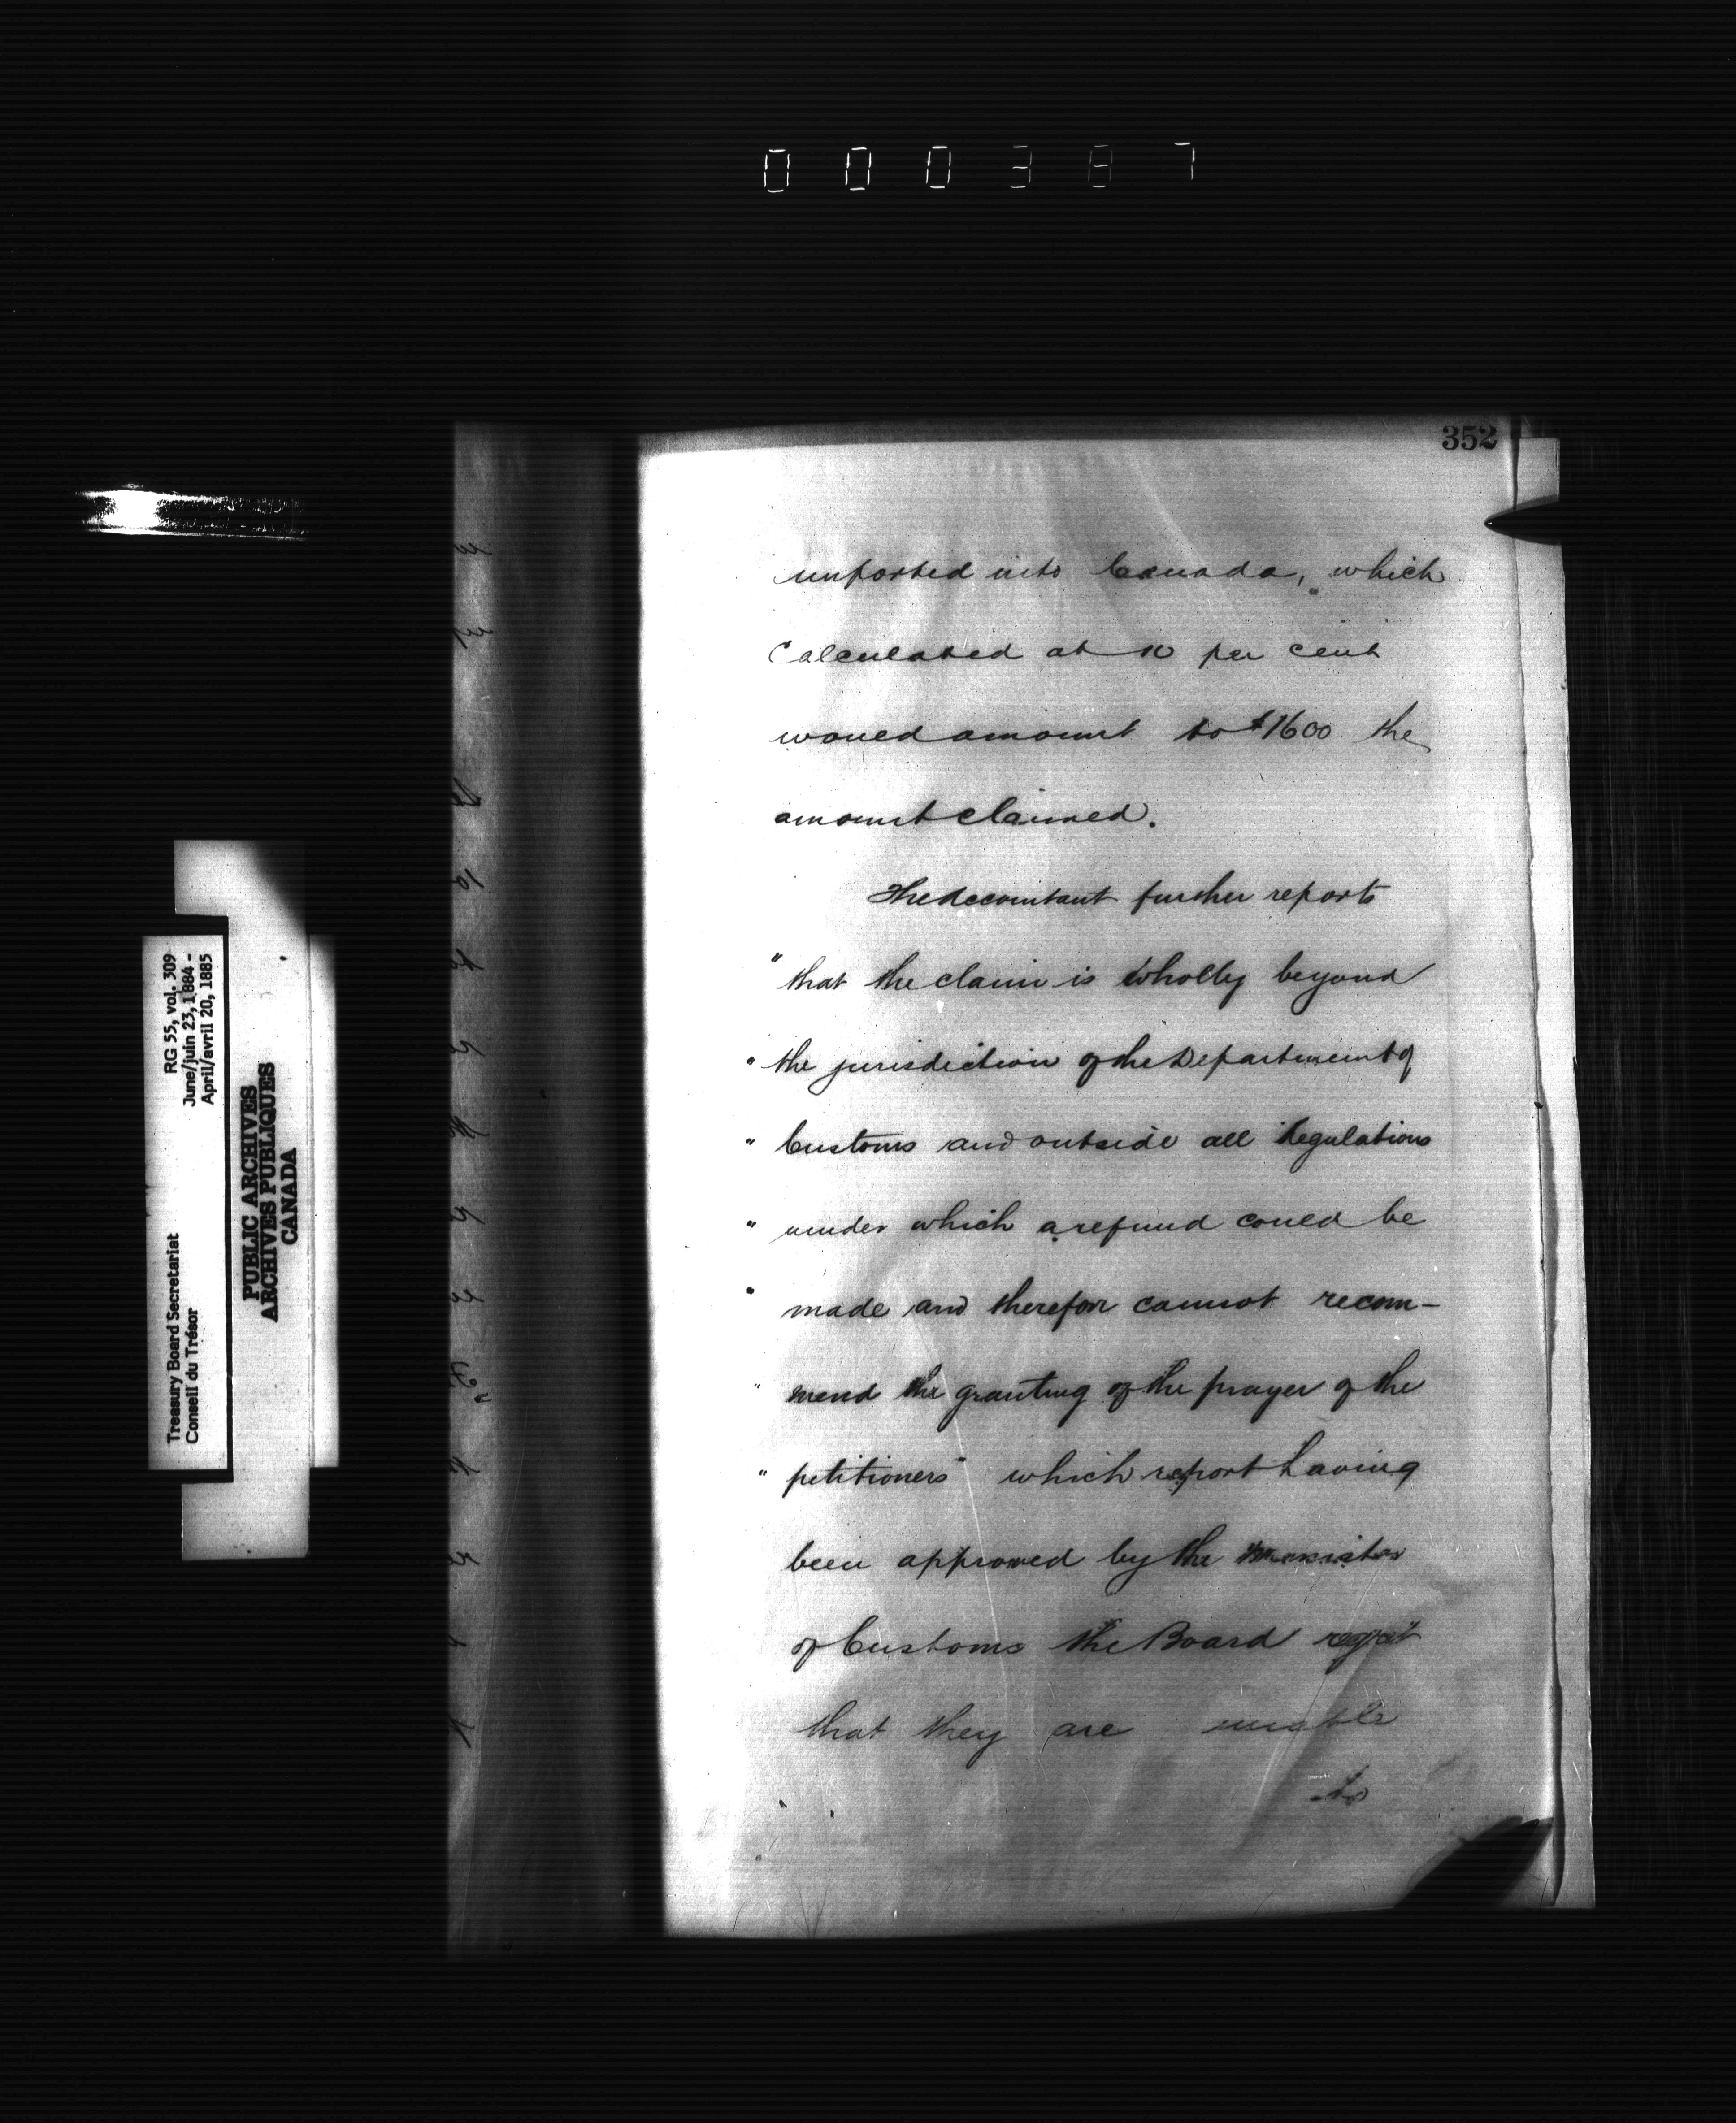 000387
352
imported into Canada, which
Calculated at 10 per cent
would amount to $1600 the
amount claimed.
The Accountant further reports
" that the claim is wholly beyond
" the jurisdiction of the Department of
" Customs and outside all Regulations
" under which a refund could be
" made and therefor cannot recom-
" mend the granting of the prayer of the
" petitioners" which report having
been approved by the Minister
of Customs the Board regret
that they are unable
to
RG 55, vol. 309
June/juin 23, 1884 -
April/avril 20, 1885
Treasury Board Secretariat
Conseil du Trésor
PUBLIC ARCHIVES
ARCHIVES PUBLIQUES
CANADA